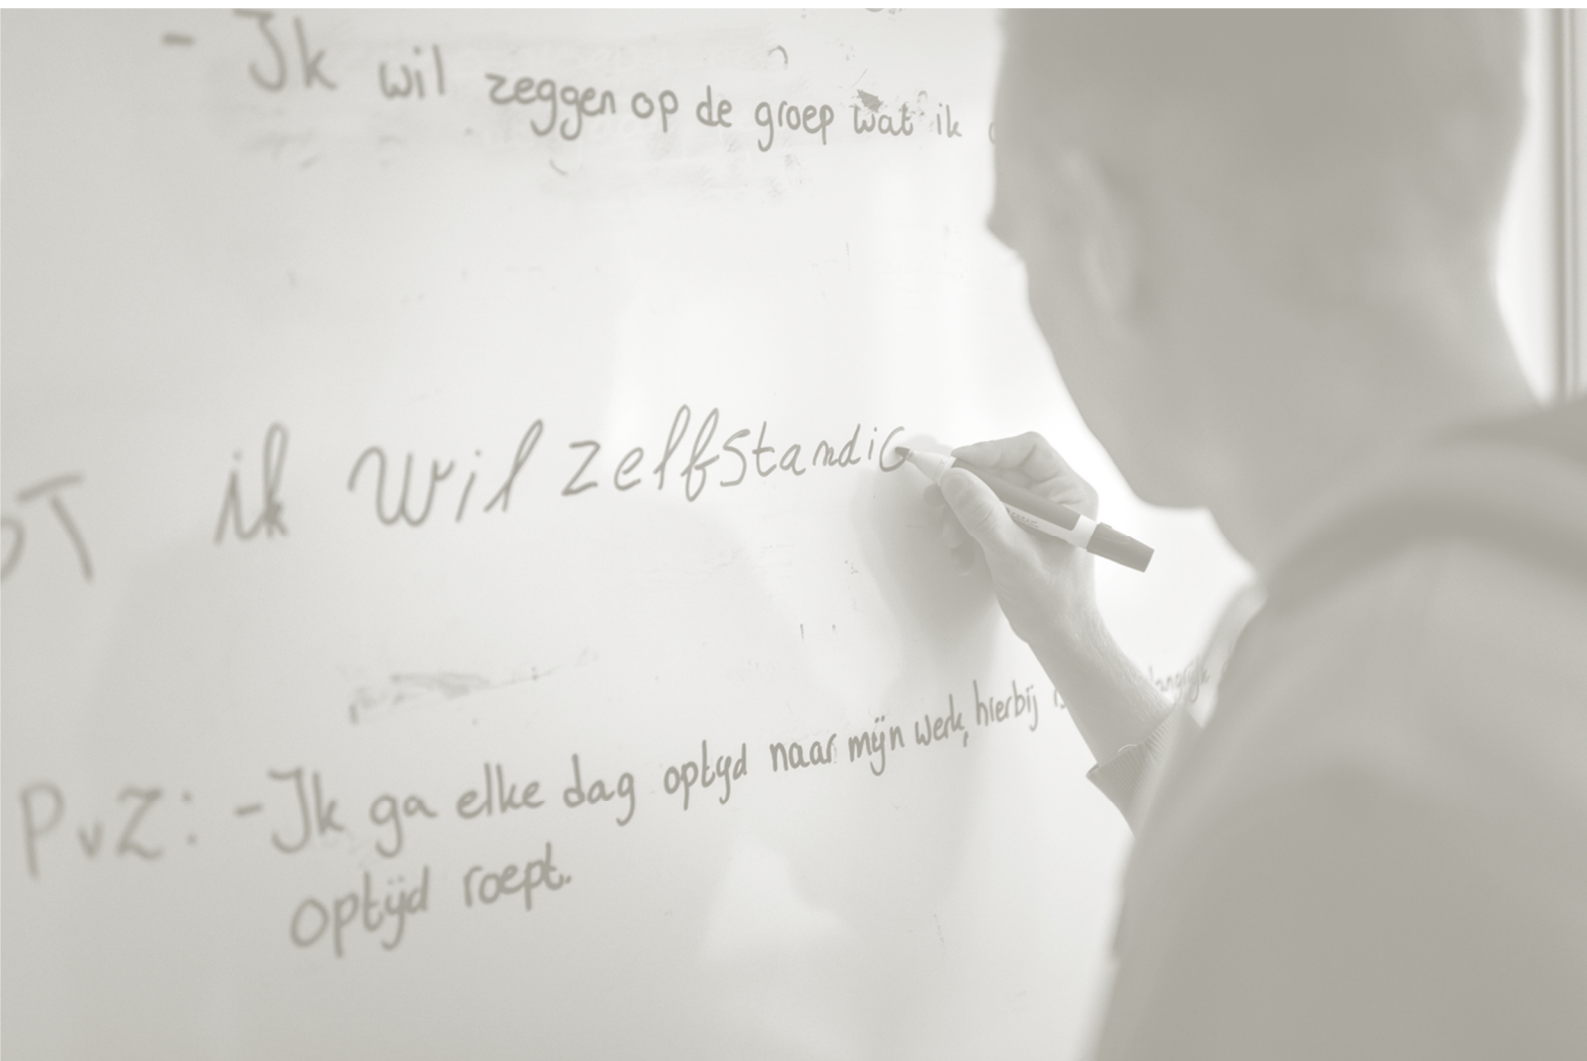 - Ik wil zeggen op de groep wat ik
ik wil zelfstandig
PvZ: - Ik ga elke dag optyd naar mijn werk, hierbij
optijd roept.